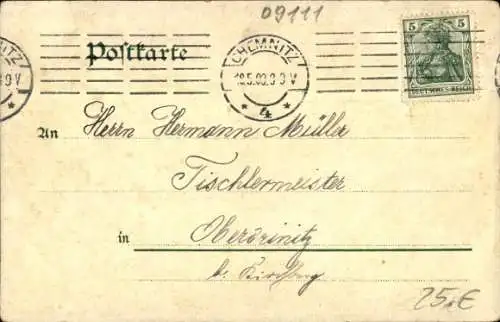 09111
Postkarte
CHEMNITZ
18.5.03. 3-9 V
* 4 *
5 5
DEUTSCHES REICH
An Herrn Hermann Müller
Tischlermeister
in Obercrinitz
b. Kirchberg
25.€